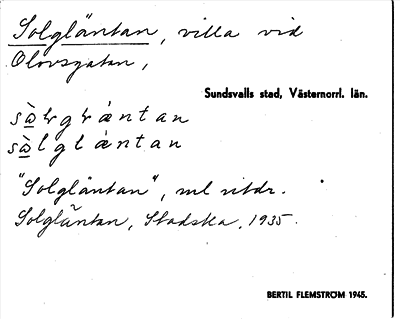 Solgläntan, villa vid
Olovsgatan,
Sundsvalls stad, Västernorrl. län.
"Solgläntan", ml
Solgläntan, Stadska. 1935.
BERTIL FLEMSTRÖM 1945.